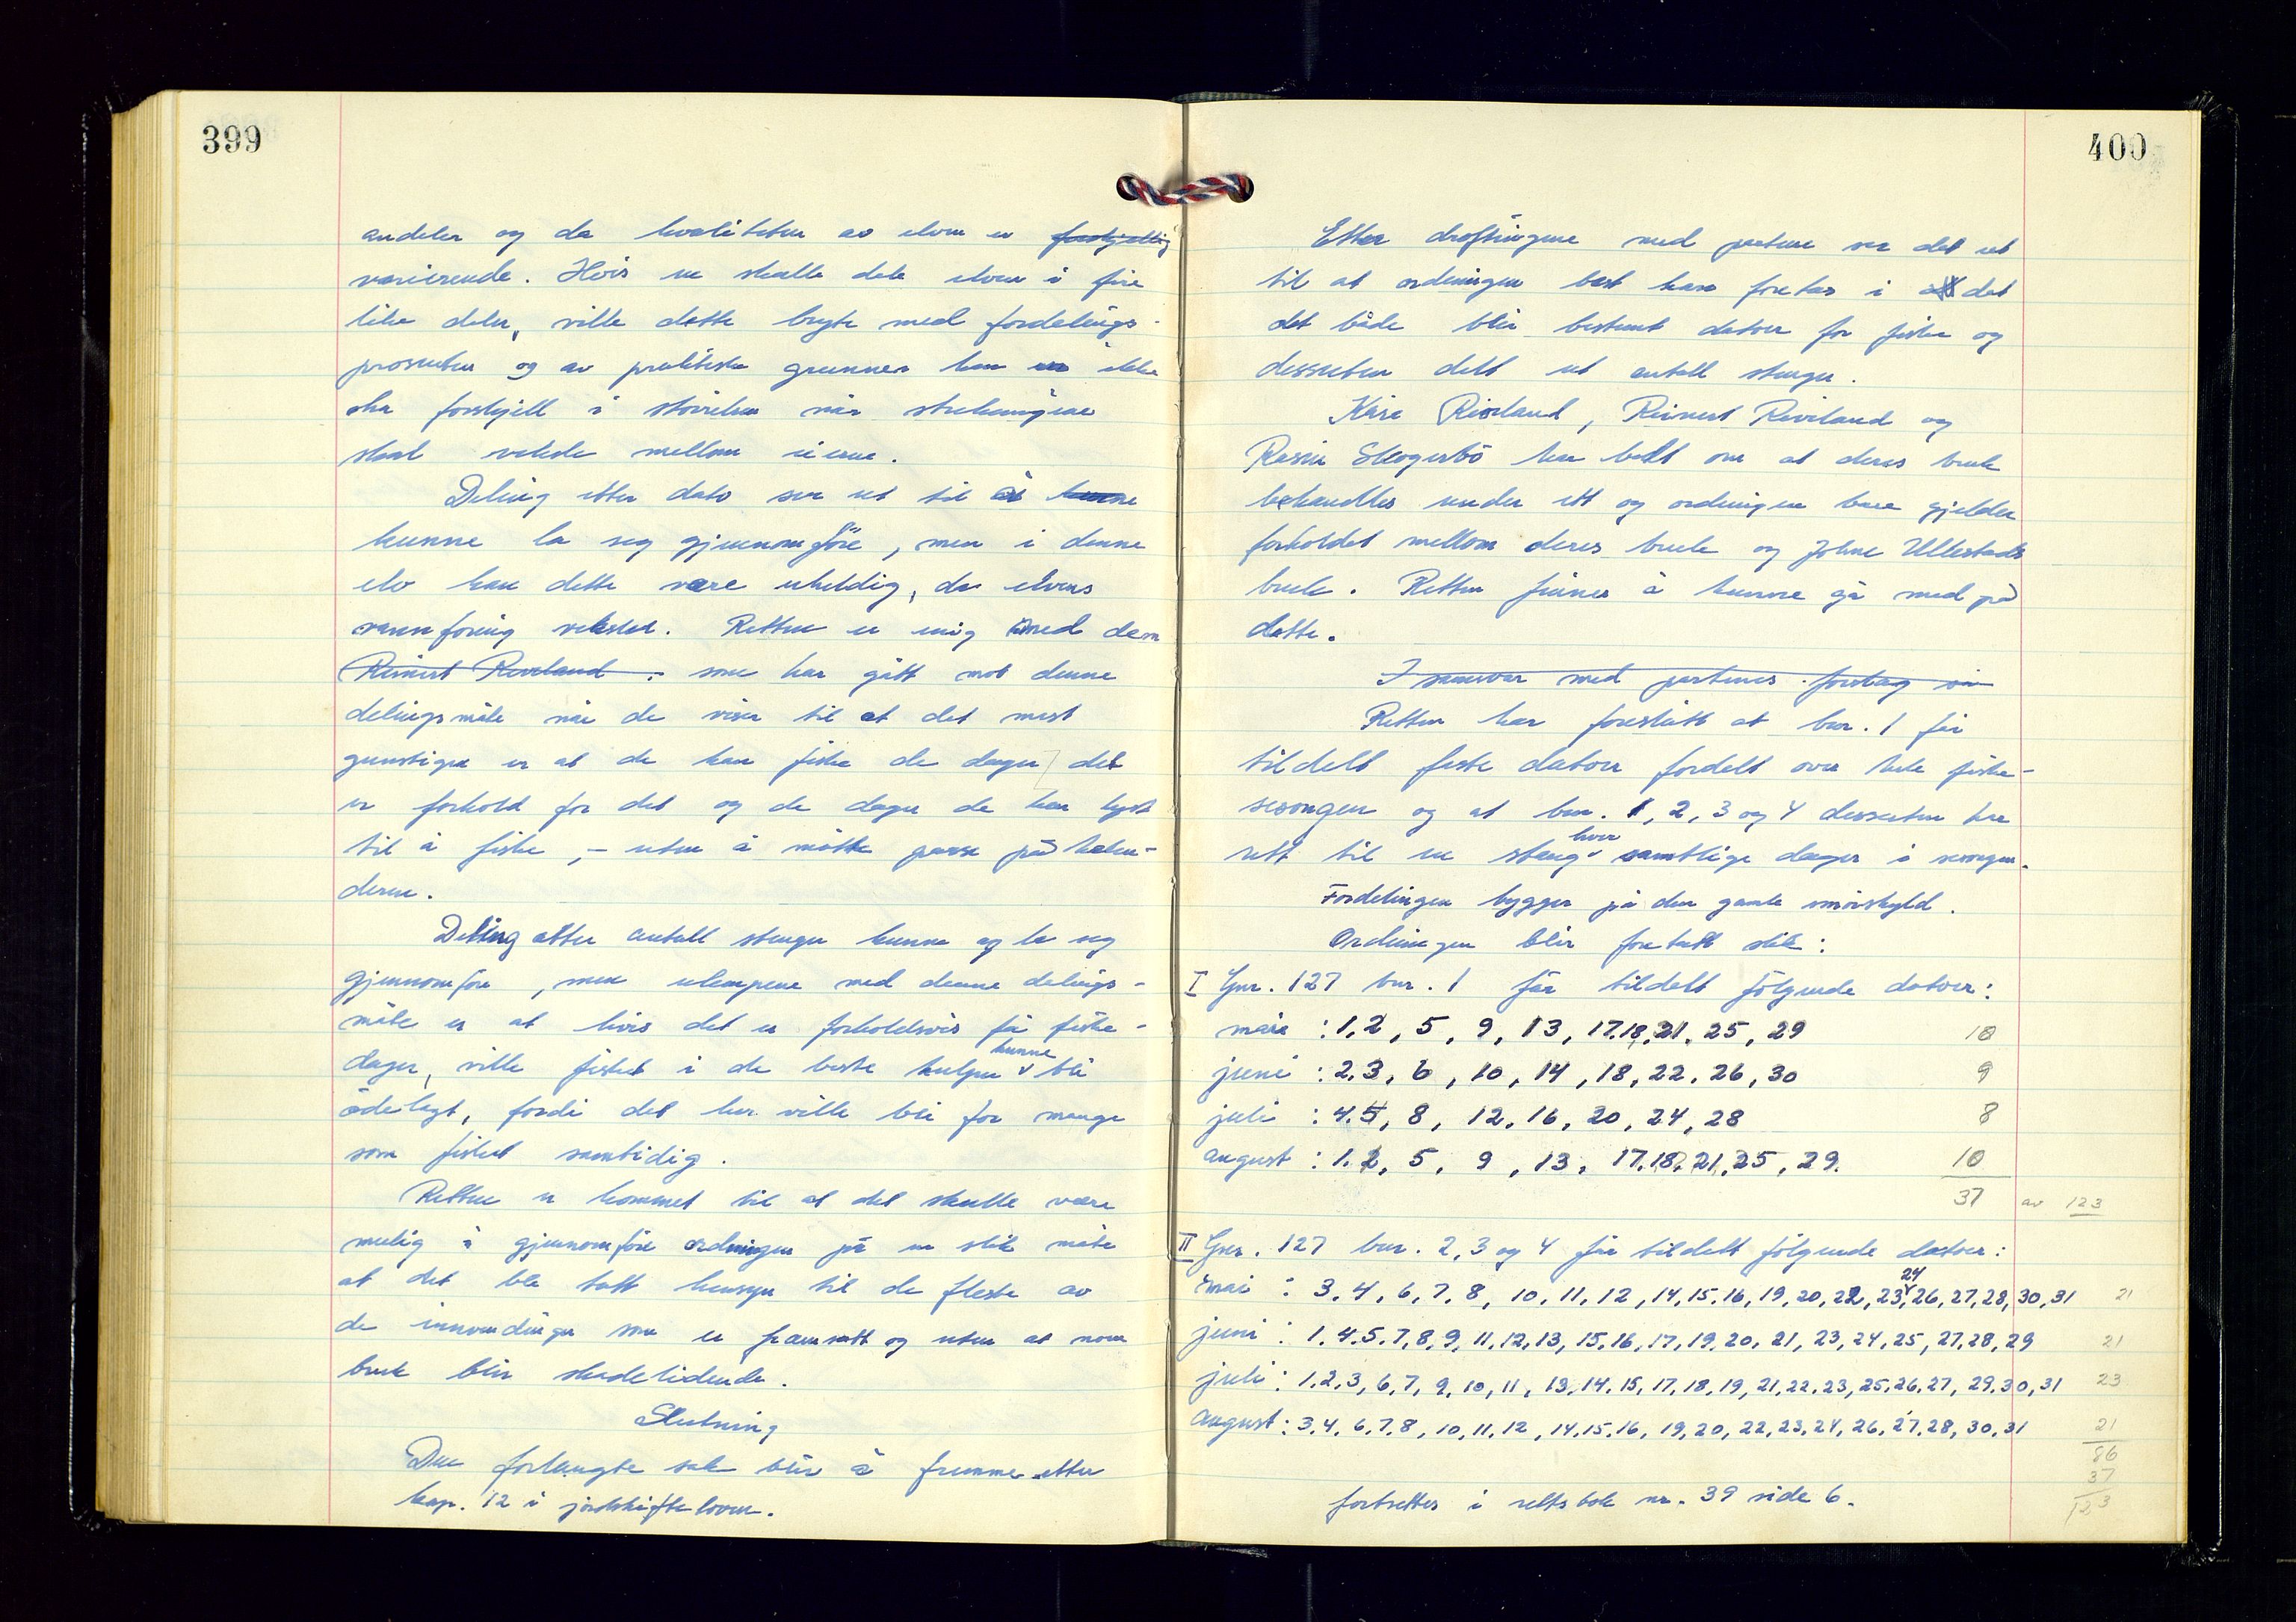 399
andeler og da kvaliteten av elven er forskjellig
varierende. Hvis en skulle dele elven i fire
like deler, ville dette bryte med fordelings-
prosenten og av praktiske grunner kan en ikke
ha forskjell i störrelsen når strekningene
skal veksle mellom eierne.
Deling etter dato ser ut til å kunne
kunne la seg gjennomföre, men i denne
elv kan dette være uheldig, da elvens
vannföring veksler. Retten er enig med dem
Reinert Roveland. som har gått mot denne
delingsmåte når de viser til at det mest
gunstige er at de kan fiske de dager det
er forhold for det og de dager de har lyst
til å fiske, - uten å måtte passe på kalen-
deren.
Deling etter antall stenger kunne og la seg
gjennomföre, men ulempene med denne delings-
måte er at hvis det er forholdsvis få fiske-
dager, ville fisket i de beste kulper kunne bli
ödelagt, fordi det her ville bli for mange
som fisket samtidig.
Retten er kommet til at det skulle være
mulig å gjennomföre ordningen på en slik måte
at det ble tatt hensyn til de fleste av
de innvendinger som er framsatt og uten at noen
bruk blir skadelidende.
Slutning
Den forlangte sak blir å fremme etter
kap. 12 i jordskifteloven.
400
Etter dröftingene med partene ser det ut
til at ordningen best kan foretas i at det
det både blir bestemt datoer for fiske og
dessuten delt ut antall stenger.
Kåre Roveland, Reinert Roveland og
Rasmus Skogerbö har bedt om at deres bruk
behandles under ett og ordningen bare gjelder
forholdet mellom deres bruk og Johne Ullestads
bruk. Retten finner å kunne gå med på
dette.
I samsvar med partenes forslag
Retten har foreslått at bnr. 1 får
tildelt faste datoer fordelt over hele fiske-
sesongen og at bnr. 1, 2, 3 og 4 dessuten har
rett til en stang hver samtlige dager i sesongen.
Fordelingen bygger på den gamle urevskyld.
Ordningen blir foretatt slik:
I Gnr. 127 bnr. 1 får tildelt fölgende datoer:
mai : 1, 2, 5, 9, 13, 17, 18, 21, 25, 29 10
juni : 2, 3, 6, 10, 14, 18, 22, 26, 30 9
juli : 4, 5, 8, 12, 16, 20, 24, 28 8
august : 1, 2, 5, 9, 13, 17, 18, 21, 25, 29. 10
37 av 123
II Gnr. 127 bnr. 2, 3 og 4 får tildelt fölgende datoer:
mai : 3, 4, 6, 7, 8, 10, 11, 12, 14, 15, 16, 19, 20, 22, 23, 24, 26, 27, 28, 30, 31 21
juni : 1, 4, 5, 7, 8, 9, 11, 12, 13, 15, 16, 17, 19, 20, 21, 23, 24, 25, 27, 28, 29 21
juli : 1, 2, 3, 6, 7, 9, 10, 11, 13, 14, 15, 17, 18, 19, 21, 22, 23, 25, 26, 27, 29, 30, 31 23
august : 3, 4, 6, 7, 8, 10, 11, 12, 14, 15, 16, 19, 20, 22, 23, 24, 26, 27, 28, 30, 31 21
86
37
123
fortsettes i rettsbok nr. 39 side 6.